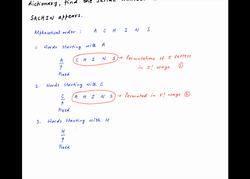 dictionary, find the serial number
SACHIN appears.
Alphabetical order : A C H I N S
1. Words starting with A
A C H I N S → Permutations of 5 letters
↑ in 5! ways ①
Fixed
2. Words starting with C
C A H I N S → Permuted in 5! ways ②
↑
Fixed
3. Words starting with H
H
↑
Fixed